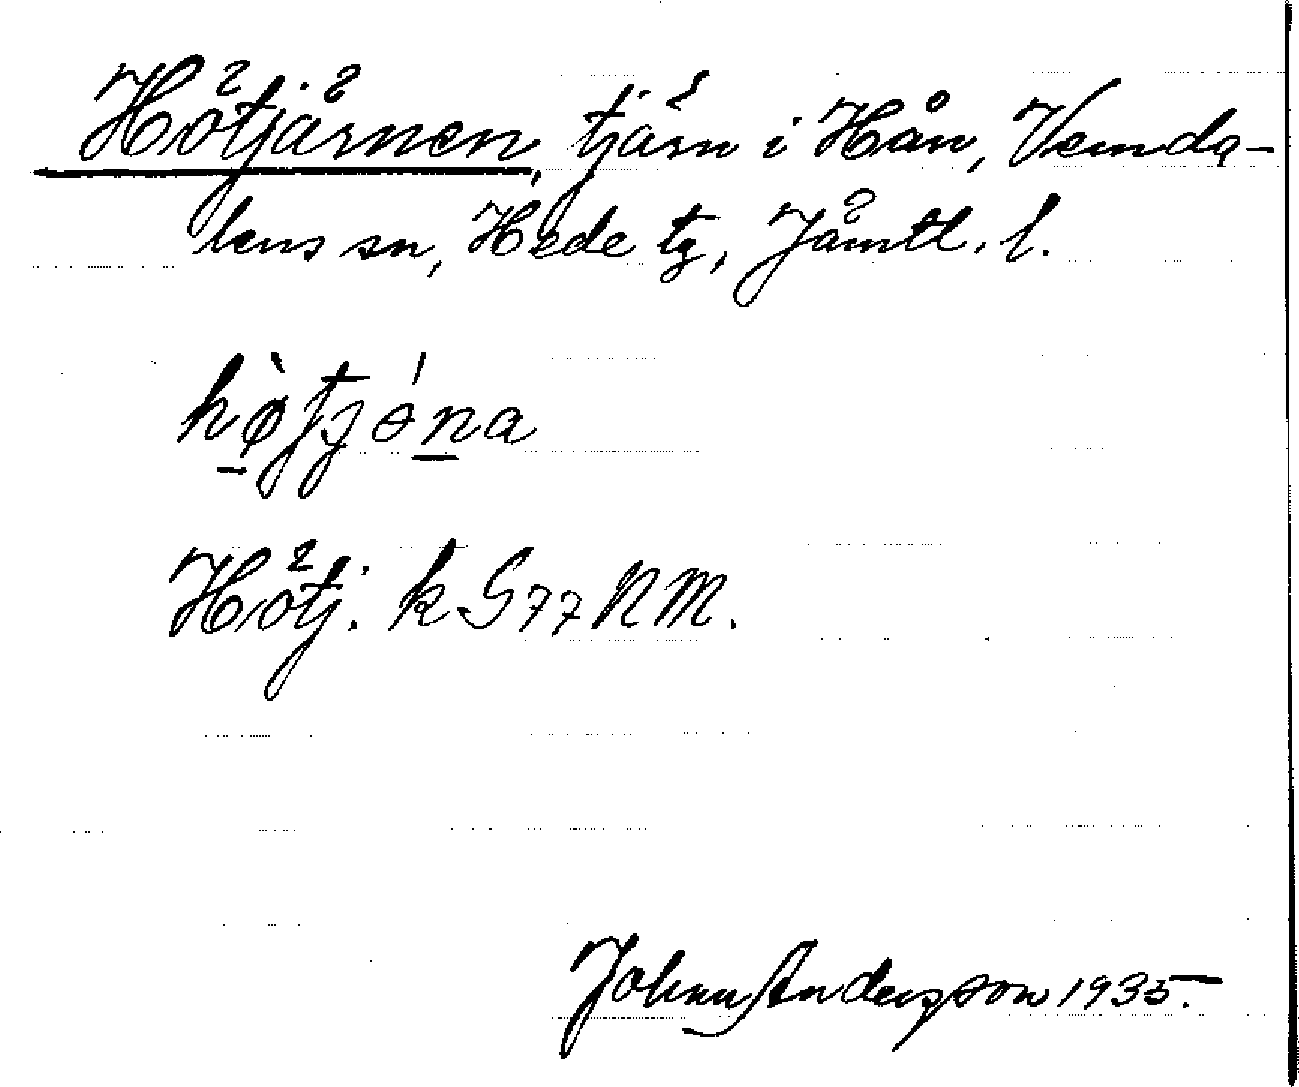 Hötjärnen, tjärn i Hån, Vemda-
lens sn, Hede tg, Jämtl. l.
hø̀tjɵ́na
Hötj. k G77 RM.
John Andersson 1935.